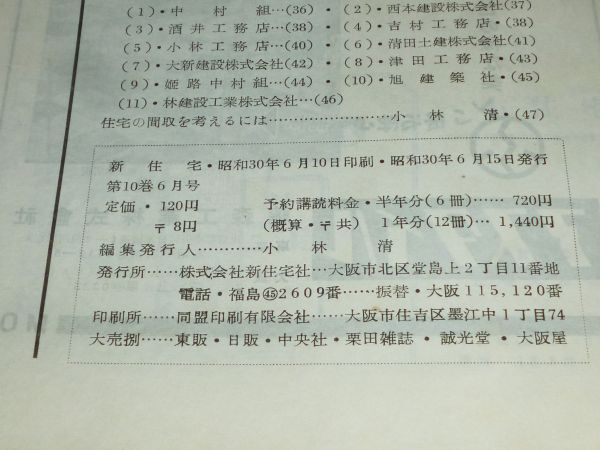 (1)・中村組…(36)・(2)・西本建設株式会社(37)
(3)・酒井工務店…(38)・(4)・吉村工務店・(38)
(5)・小林工務店…(40)・(6)・清田土建株式会社(41)
(7)・大新建設株式会社(42)・(8)・津田工務店・(43)
(9)・姫路中村組…(44)・(10)・旭建築社・(45)
(11)・林建設工業株式会社…(46)
住宅の間取を考えるには……………………小林清・(47)
新住宅・昭和30年6月10日印刷・昭和30年6月15日発行
第10巻6月号
定価・120円 予約講読料金・半年分(6冊)…… 720円
〒8円 (概算・〒共) 1年分(12冊)… 1,440円
編集発行人…………小林清
発行所……株式会社新住宅社…大阪市北区堂島上2丁目11番地
電話・福島㊺2609番……振替・大阪115,120番
印刷所……同盟印刷有限会社……大阪市住吉区墨江中1丁目74
大売捌……東販・日販・中央社・栗田雑誌・誠光堂・大阪屋